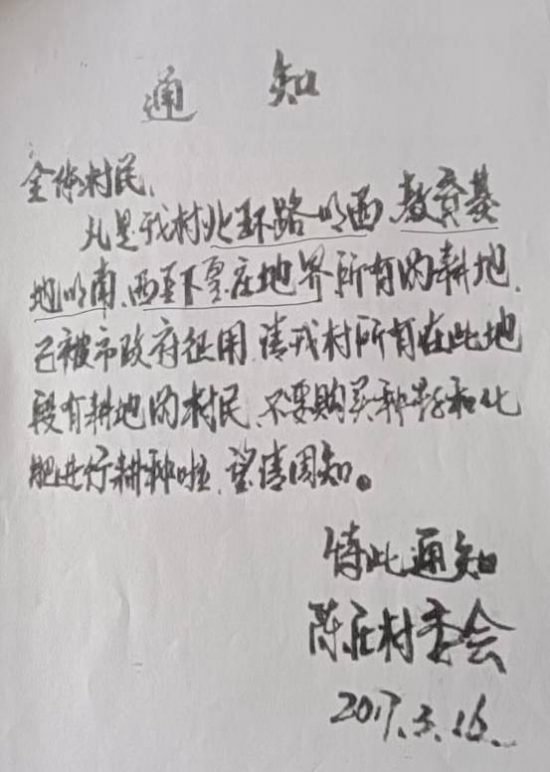 通知
全体村民、
凡是我村北环路以西、教育基
地以南、西至下夏庄地界所有的耕地、
已被市政府征用、请我村所有在此地
段有耕地的村民、不要购买种籽和化
肥进行耕种啦、望请周知。
特此通知
陈庄村委会
2017.3.16.